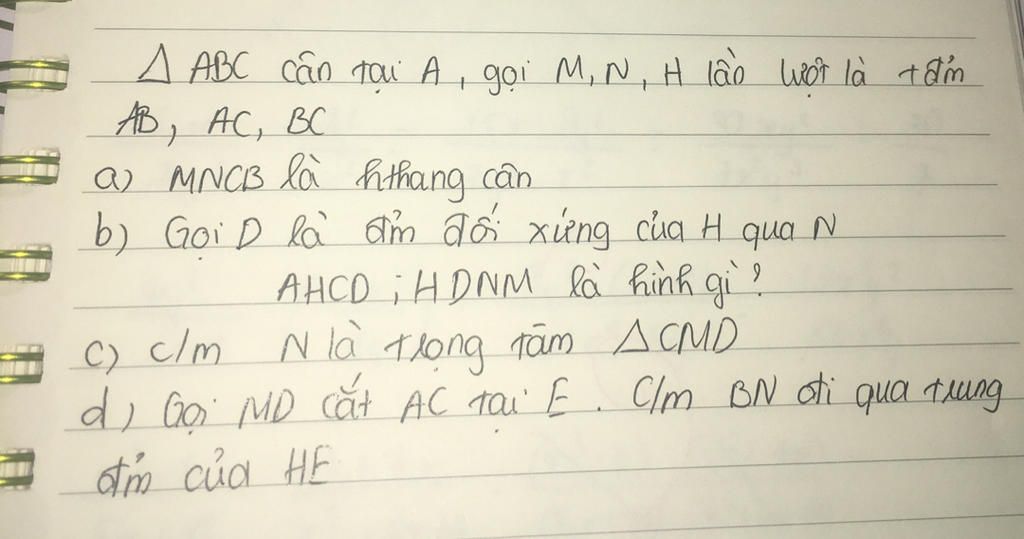 Δ ABC cân tại A, gọi M, N, H lần lượt là tđm
AB, AC, BC
a) MNCB là hthang cân
b) Gọi D là đm đối xứng của H qua N
AHCD ; HDNM là hình gì?
c) c/m N là trọng tâm Δ CMD
d) Gọi MD cắt AC tại E. C/m BN đi qua trung
đm của HE